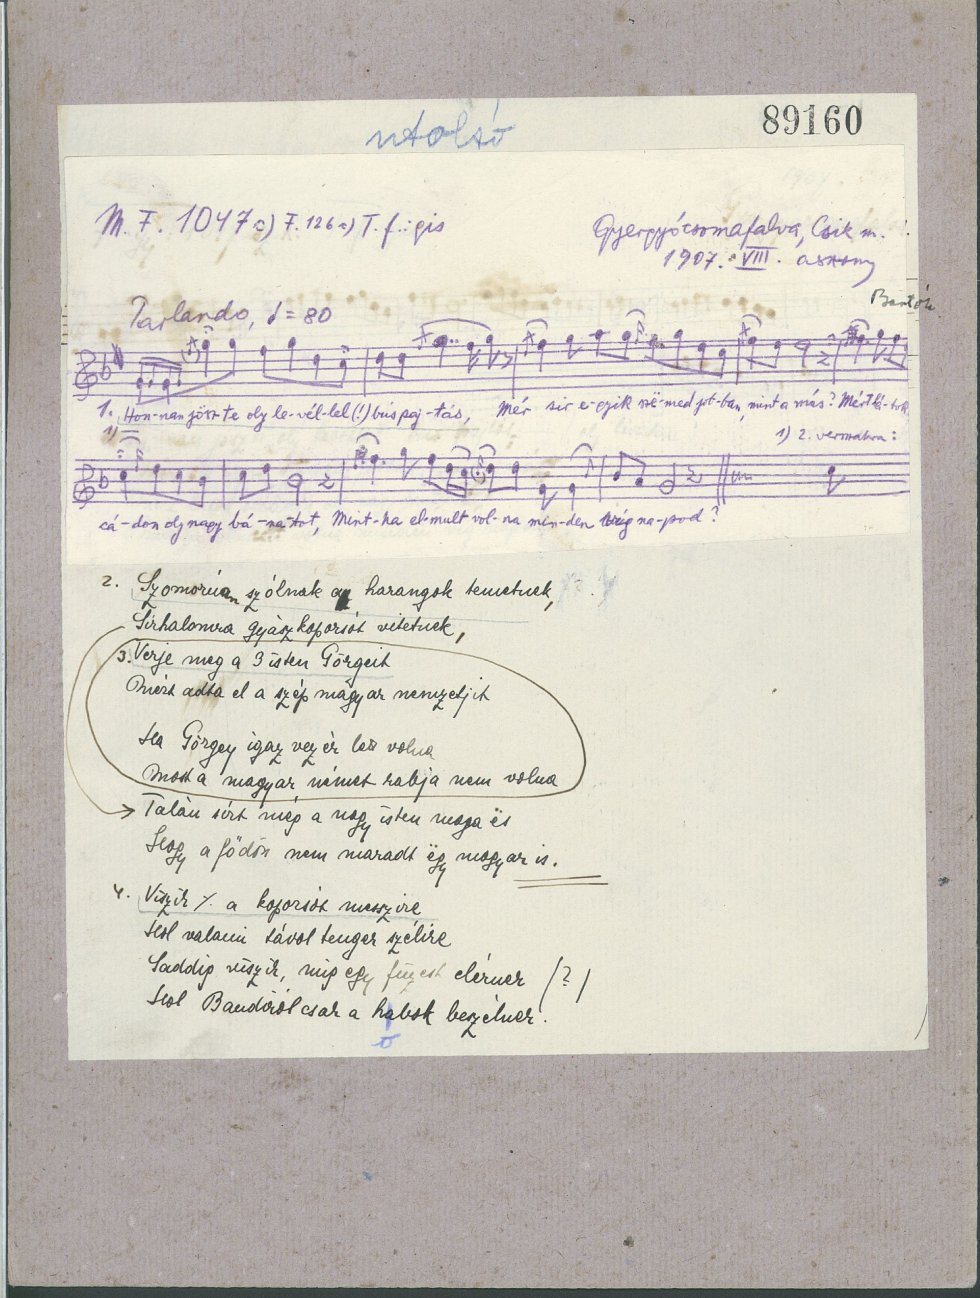 utolsó
89160
M. F. 1047c) F. 126a) T. f.: gis
Gyergyócsomafalva, Csik m.
1907. VIII. asszony
Bartók
Parlando, = 80
1. Hon-nan jösz te oly le-vél-lel(!) bús paj-tás, Mér sir e-gyik szë-med job-ban, mint a más? Mért lá-tok
1) 1) 2. versszakra:
cá-don oly nagy bá-na-tot, Mint-ha el-mult vol-na min-den víg na-pod?
2. Szomorúan szólnak az harangok temetnek,
Sirhalomra gyászkoporsót vitetnek,
3. Verje meg a 3 isten Görgeit
Miért adta el a szép magyar nemzetjit
Ha Görgey igaz vezér lett volna
Most a magyar német rabja nem volna
Talán sírt még a nagy isten maga ës
Hogy a födön nem maradt ëgy magyar is.
4. Viszik ٪ a koporsót messzire
Hol valami távol tenger szélire
Saddig viszik, mig egy elérnek (?)
Hol csak a habok beszélnek.